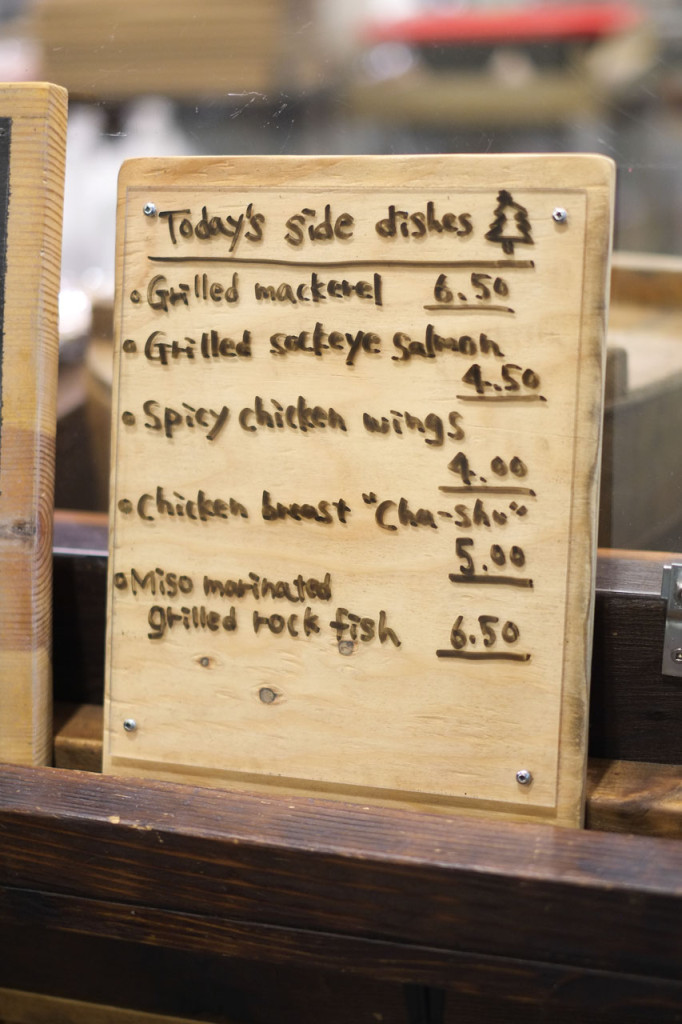 Today's side dishes
• Grilled mackerel 6.50
• Grilled sockeye salmon
4.50
• Spicy chicken wings
4.00
• Chicken breast "Cha-shu"
5.00
• Miso marinated
grilled rock fish 6.50